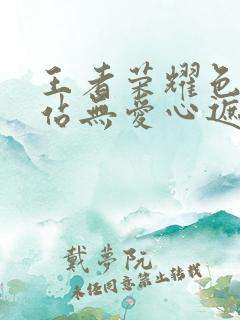 王者荣耀色
佔無愛心遮
戴夢阮
未经同意禁止转载